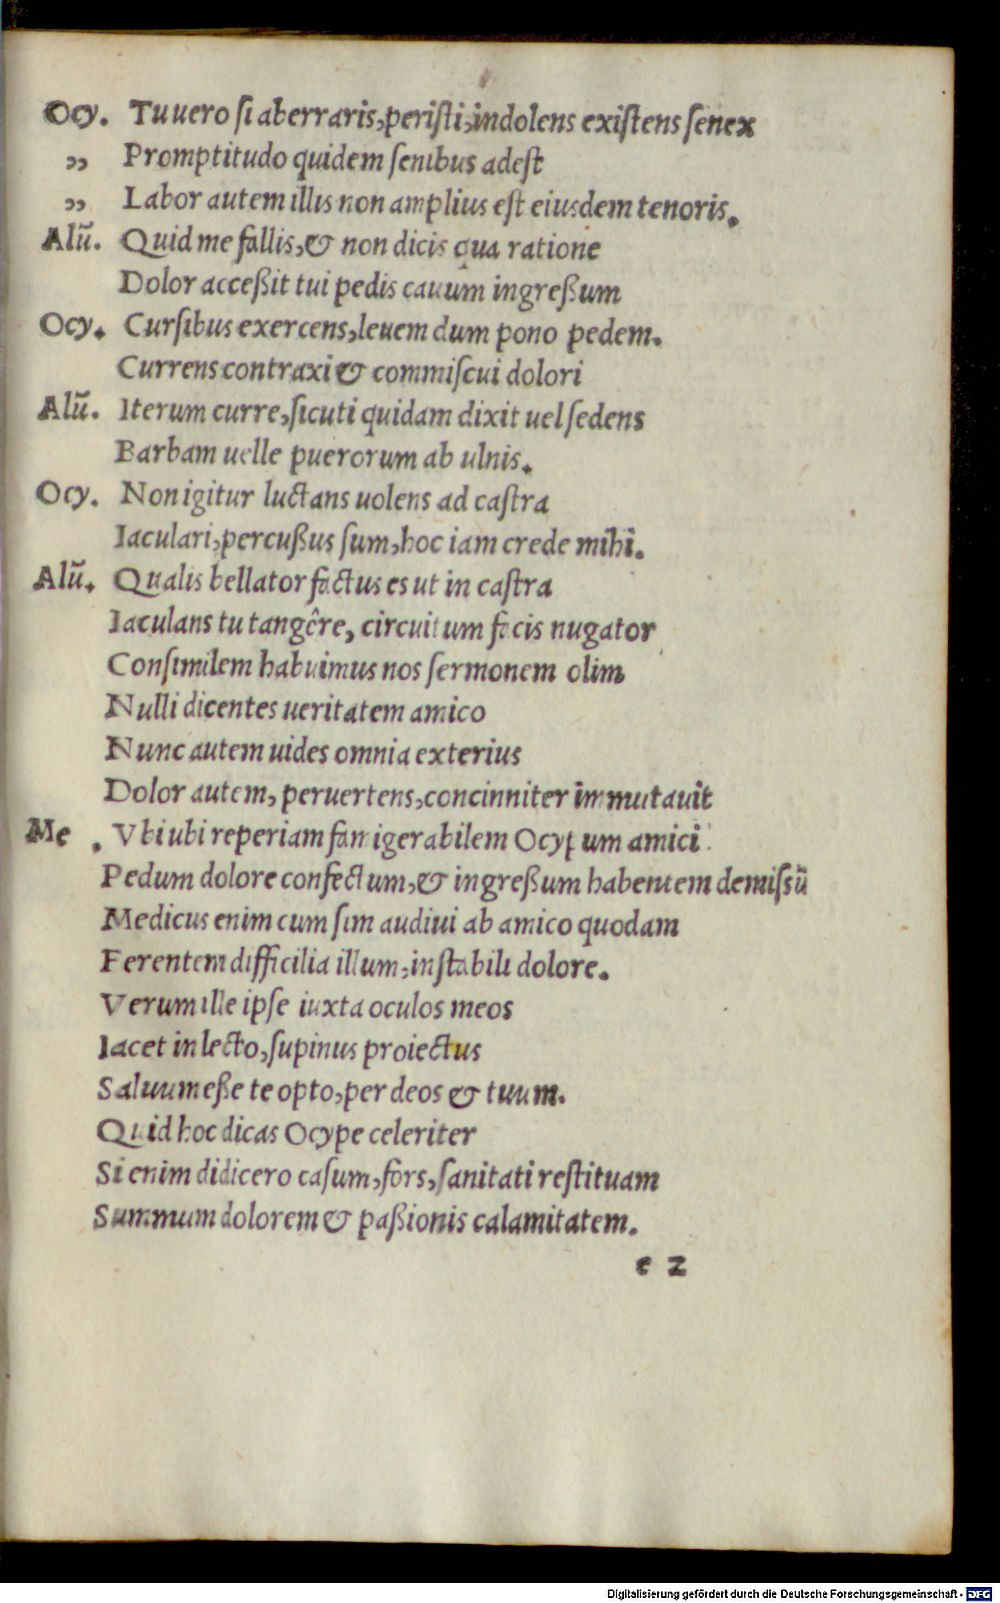 Ocy. Tu uero ſi aberraris, periſti, indolens exiſtens ſenex
„ Promptitudo quidem ſenibus adeſt
„ Labor autem illis non amplius eſt eiusdem tenoris.
Alū. Quid me fallis, & non dicis qua ratione
Dolor acceßit tui pedis cauum ingreßum
Ocy. Curſibus exercens, leuem dum pono pedem.
Currens contraxi & commiſcui dolori
Alū. Iterum curre, ſicuti quidam dixit uel ſedens
Barbam uelle puerorum ab ulnis.
Ocy. Non igitur luctans uolens ad caſtra
Iaculari, percußus ſum, hoc iam crede mihi.
Alū. Qualis bellator factus es ut in caſtra
Iaculans tu tangêre, circuitum facis nugator
Conſimilem habuimus nos ſermonem olim
Nulli dicentes ueritatem amico
Nunc autem uides omnia exterius
Dolor autem, peruertens, concinniter immutauit
Me . Vbi ubi reperiam famigerabilem Ocypum amici
Pedum dolore confectum, & ingreßum habentem demiſſū
Medicus enim cum ſim audiui ab amico quodam
Ferentem difficilia illum, inſtabili dolore.
Verum ille ipſe iuxta oculos meos
Iacet in lecto, ſupinus proiectus
Saluum eße te opto, per deos & tuum.
Quid hoc dicas Ocype celeriter
Si enim didicero caſum, fors, ſanitati reſtituam
Summum dolorem & paßionis calamitatem.
e 2
Digitalisierung gefördert durch die Deutsche Forschungsgemeinschaft - DFG